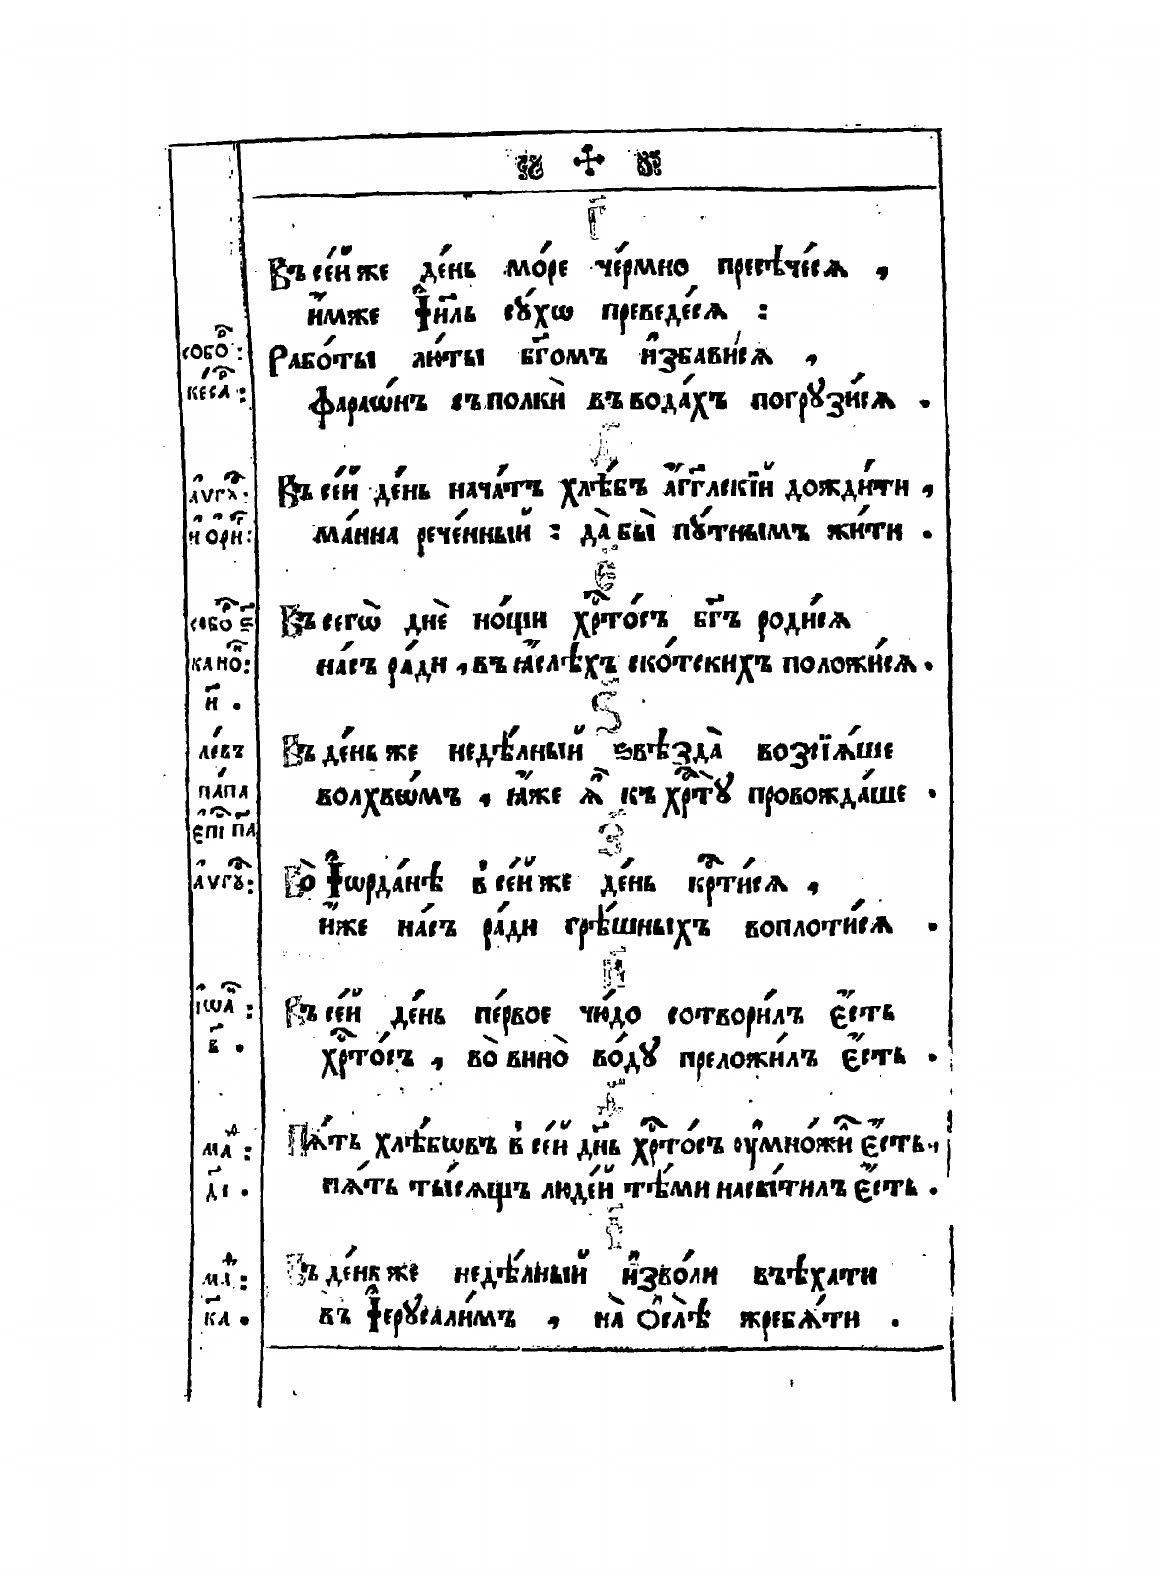 Г҃
Въ се́й же де́нь мо́ре че́рмно пресѣче́сѧ ,
и҆́мже І҆и҃ль сꙋ́хѡ преведе́сѧ :
Рабо́ты лю́ты бг҃омъ и҆зба́висѧ ,
фараѡ́нъ съ полкѝ въ вода́хъ погрꙋзи́сѧ .
Д҃
Въ се́й де́нь нача́тъ хлѣ́бъ а҆́гг҃лскїй дожди́ти ,
ма́нна рече́нный : да̀ бы̀ пꙋ́тнымъ жи́ти .
Е҃
Въ сегѡ̀ днѐ но́щи хрⷭ҇то́съ бг҃ъ роди́сѧ
на́съ ра́ди , въ ꙗ҆́слѣхъ ско́тскихъ положи́сѧ .
Ѕ҃
Въ де́нь же недѣ́лный ѕвѣзда̀ возсїѧ́ше
волхвѡ́мъ , ꙗ҆́же ѧ҆̀ къ хрⷭ҇тꙋ̀ провожда́ше .
З҃
Во̀ І҆ѡрда́нѣ в̾ се́й же де́нь крⷭ҇ти́сѧ ,
и҆́же на́съ ра́ди грѣ́шныхъ воплоти́сѧ .
И҃
Въ се́й де́нь пе́рвое чю́до сотвори́лъ є҆́сть
хрⷭ҇то́съ , во̀ вино̀ во́дꙋ преложи́лъ є҆́сть .
Ѳ҃
Пѧ́ть хлѣ́бѡвъ в̾ се́й дн҃ь хрⷭ҇то́съ ᲂу҆мно́жилъ є҆́сть ,
пѧ́ть ты́сѧщъ люде́й тѣ́ми насы́тилъ є҆́сть .
І҃
Въ де́нь же недѣ́лный и҆зво́ли въѣ́хати
въ І҆ерꙋсали́мъ , на̀ О҆слѣ̀ жребѧ́ти .
собоⷬ :
кесаⷬ :
а҆ѵгꙋⷭ :
и҆ ѻ҆риⷢ :
собоⷬ ѕ҃
каноⷩ :
и҃ .
ле́въ
па́па
є҆пїⷭ па҃
а҆ѵгꙋⷭ :
і҆ѡаⷩ :
в҃ .
маⷴ :
д҃і .
маⷴ :
к҃а .